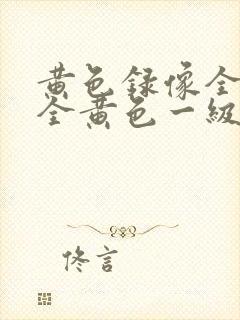 黄色録像全
全黄色一級
佟言